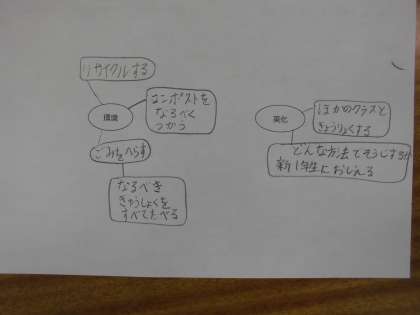 リサイクルする
環境
コンポストを
なるべく
つかう
ごみをへらす
なるべき
きゅうしょくを
すべてたべる
美化
ほかのクラスと
きょうりょくする
どんな方法でそうじするか
新1年生におしえる